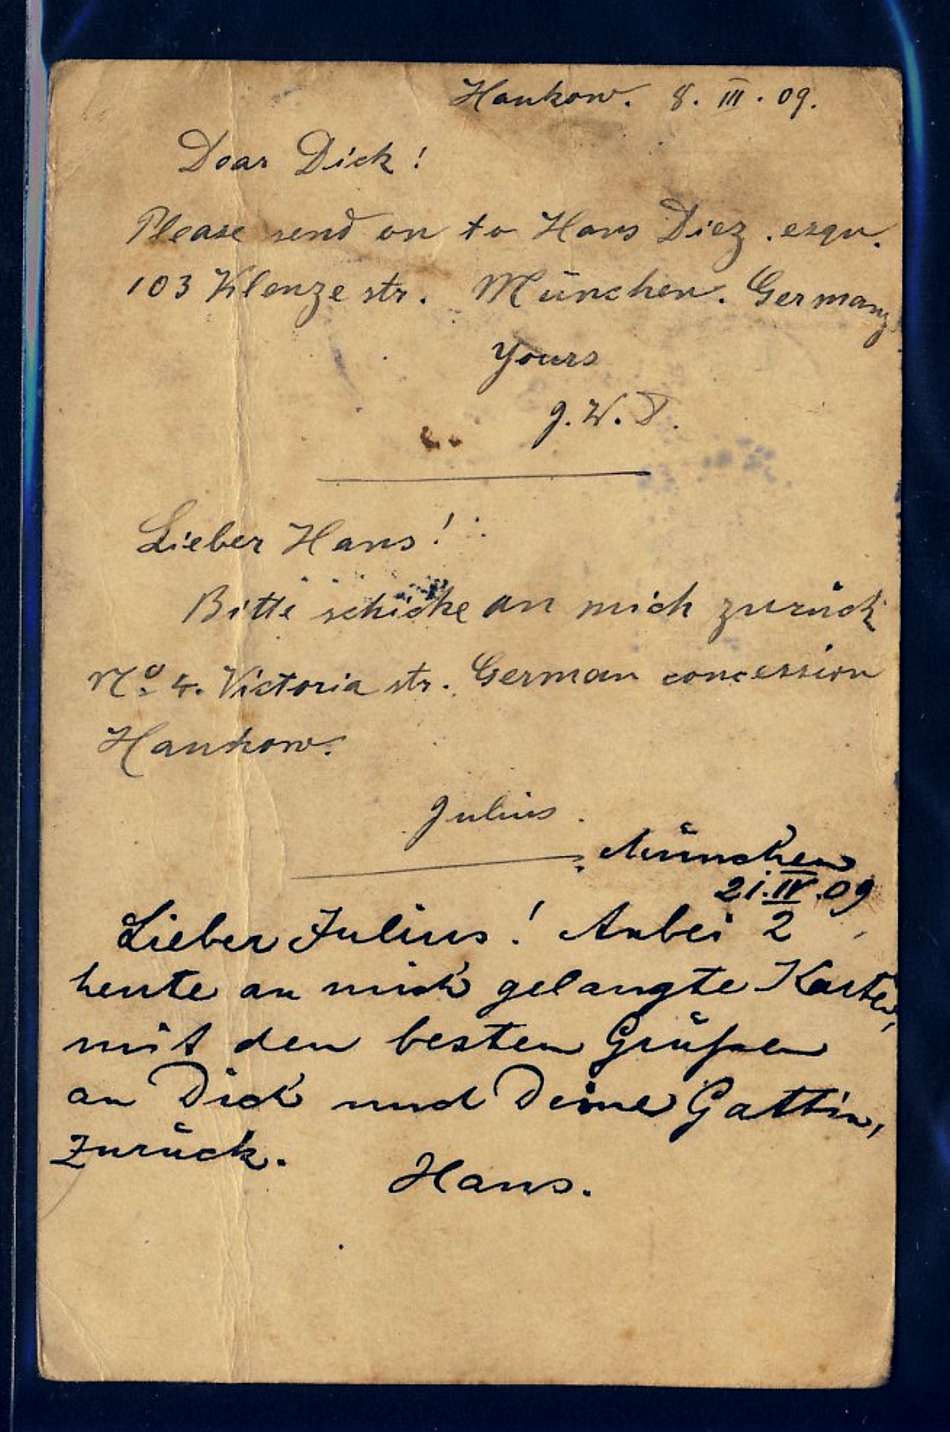 Hankow. 8. III. 09.
Dear Dick!
Please send on to Hans Diez. esqu.
103 Klenze str. München. Germany
Yours
J. W. T.
Lieber Hans!
Bitte schicke an mich zurück
No. 4. Victoria str. German concession
Hankow.
Julius.
München
21. IV. 09
Lieber Julius! Anbei 2
heute an mich gelangte Karten,
mit den besten Grüßen
an Dick und Deine Gattin,
zurück.
Hans.